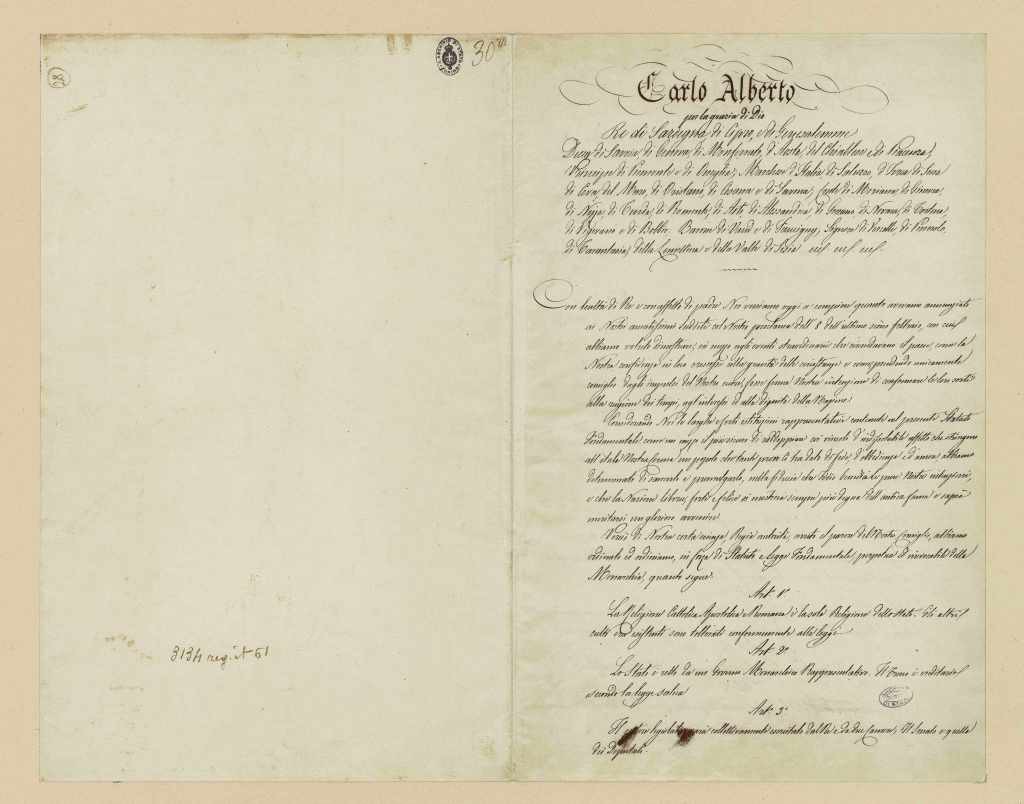 28
30
3134 reg. it 61
Carlo Alberto
per la grazia di Dio
Re di Sardegna, di Cipro, e di Gerusalemme
Duca di Savoia, di Genova, di Monferrato, d'Aosta, del Chiablese e di Piacenza;
Principe di Piemonte e di Oneglia; Marchese d'Italia, di Saluzzo, d'Ivrea, di Susa
di Ceva, del Maro, di Oristano, di Cesana e di Savona; Conte di Moriana, di Ginevra,
di Nizza, di Tenda, di Romonte, di Asti, di Alessandria, di Goceano, di Novara, di Tortona,
di Vigevano e di Bobbio. Barone di Vaud e di Faucigny; Signore di Vercelli, di Pinerolo,
di Tarantasia, della Lomellina e della Valle di Sesia
Con lealtà di Re e con affetto di padre Noi veniamo oggi a compiere quanto avevamo annunziato
ai Nostri amatissimi sudditi col Nostro proclama dell' 8 dell'ultimo scorso febbraio, con cui
abbiamo voluto dimostrare, in mezzo agli eventi straordinarii che circondavano il paese, come la
Nostra confidenza in loro crescesse colla gravità delle circostanze, e come prendendo unicamente
consiglio dagli impulsi del Nostro cuore, fosse ferma Nostra intenzione di conformare le loro sorti
alla ragione dei tempi, agl'interessi ed alla dignità della Nazione.
Considerando Noi le larghe e forti istituzioni rappresentative contenute nel presente Statuto
fondamentale come un mezzo il più sicuro di raddoppiare coi vincoli d'indissolubile affetto che stringono
all'itala Nostra Corona un popolo, che tante prove Ci ha dato di fede, d'obbedienza e d'amore, abbiamo
determinato di sancirlo e promulgarlo, nella fiducia che Iddio benedirà le pure Nostre intenzioni,
e che la Nazione libera, forte e felice si mostrerà sempre più degna dell'antica fama e saprà
meritarsi un glorioso avvenire.
Perciò di Nostra certa scienza, Regia autorità, avuto il parere del Nostro Consiglio, abbiamo
ordinato ed ordiniamo, in forza di Statuto e Legge fondamentale, perpetua ed irrevocabile della
Monarchia, quanto segue:
Art. 1°
La Religione Cattolica Apostolica e Romana è la sola Religione dello Stato. Gli altri
culti ora esistenti sono tollerati conformemente alle leggi.
Art. 2°
Lo Stato è retto da un Governo Monarchico Rappresentativo. Il Trono è ereditario
secondo la legge salica
Art. 3°
Il potere legislativo sarà collettivamente esercitato dal Re e da due Camere; Il Senato e quella
dei Deputati.